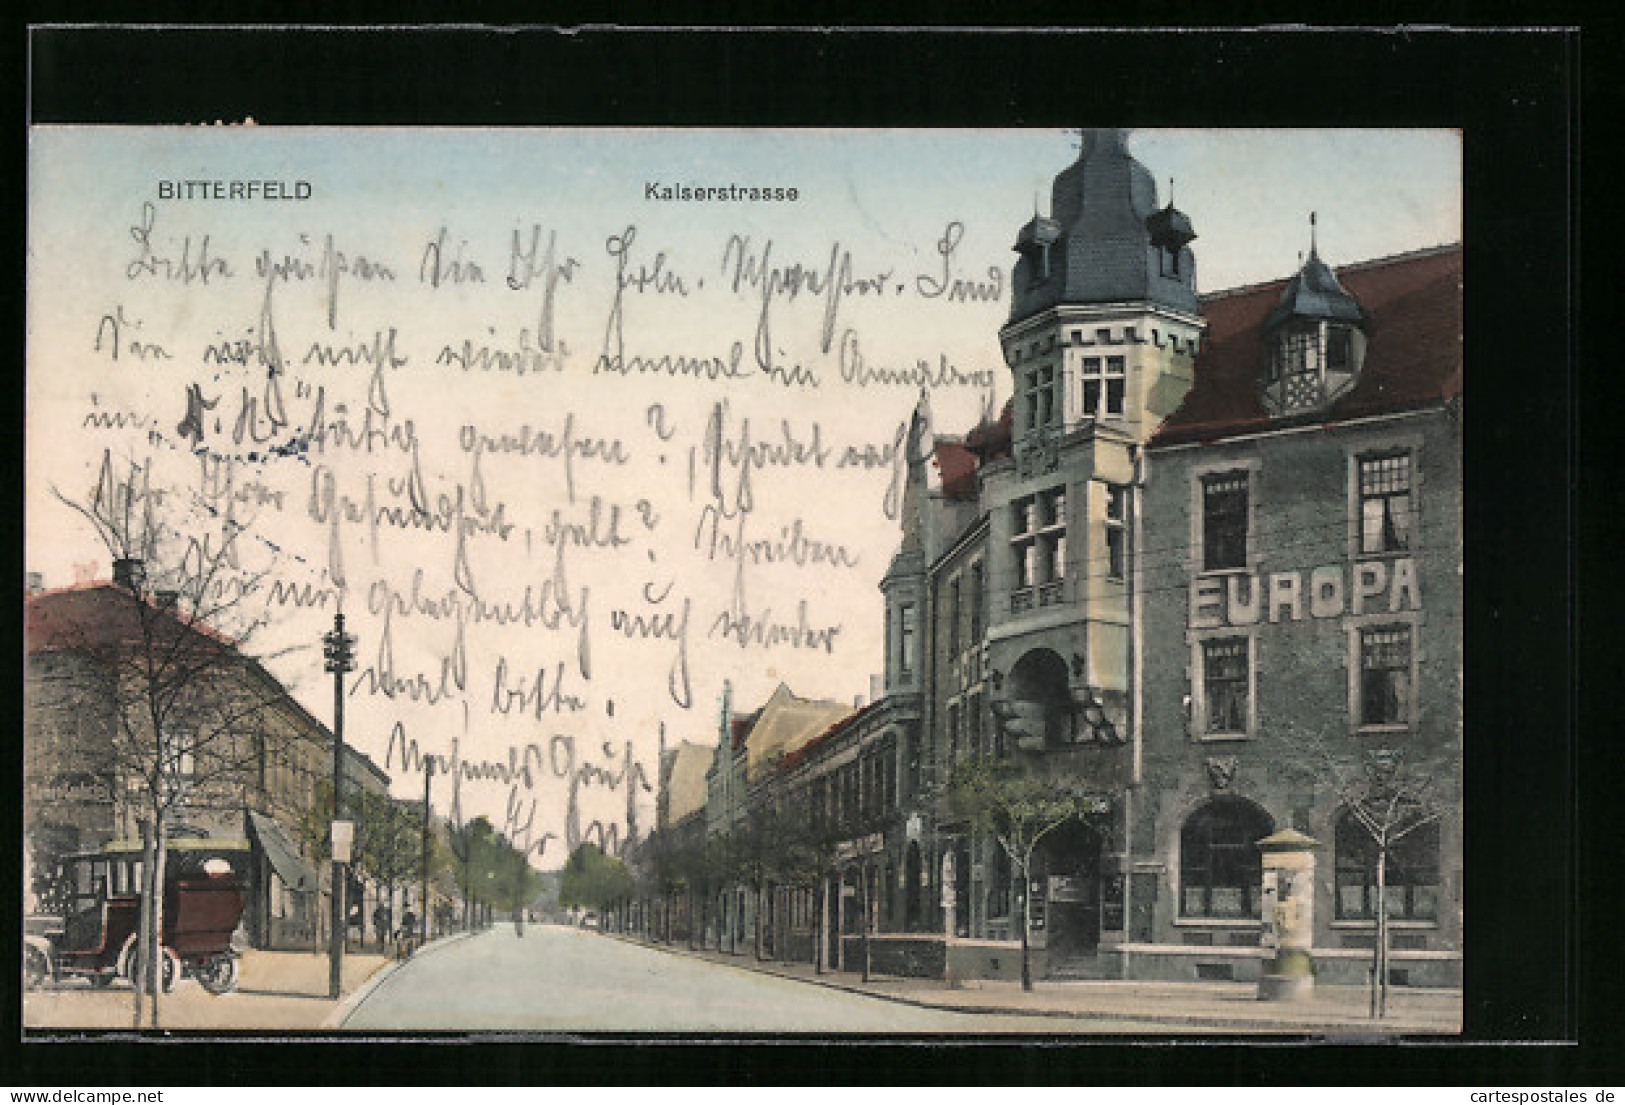 BITTERFELD
Kaiserstrasse
Bitte grüßen Sie Ihr Frln. Schwester. Sind
Sie noch nicht wieder einmal in Annaberg
im tätig gewesen? Schadet wohl
sehr Ihrer Gesundheit, gelt? Schreiben
Sie mir gelegentlich auch wieder
mal, bitte.
Nochmals Gruß
Ihr
EUROPA
cartespostales de